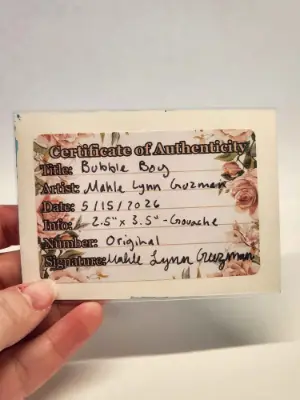 Certificate of Authenticity
Title: Bubble Boy
Artist: Mahle Lynn Guzman
Date: 5/15/2026
Info: 2.5" x 3.5" - Gouache
Number: Original
Signature: Mahle Lynn Guzman